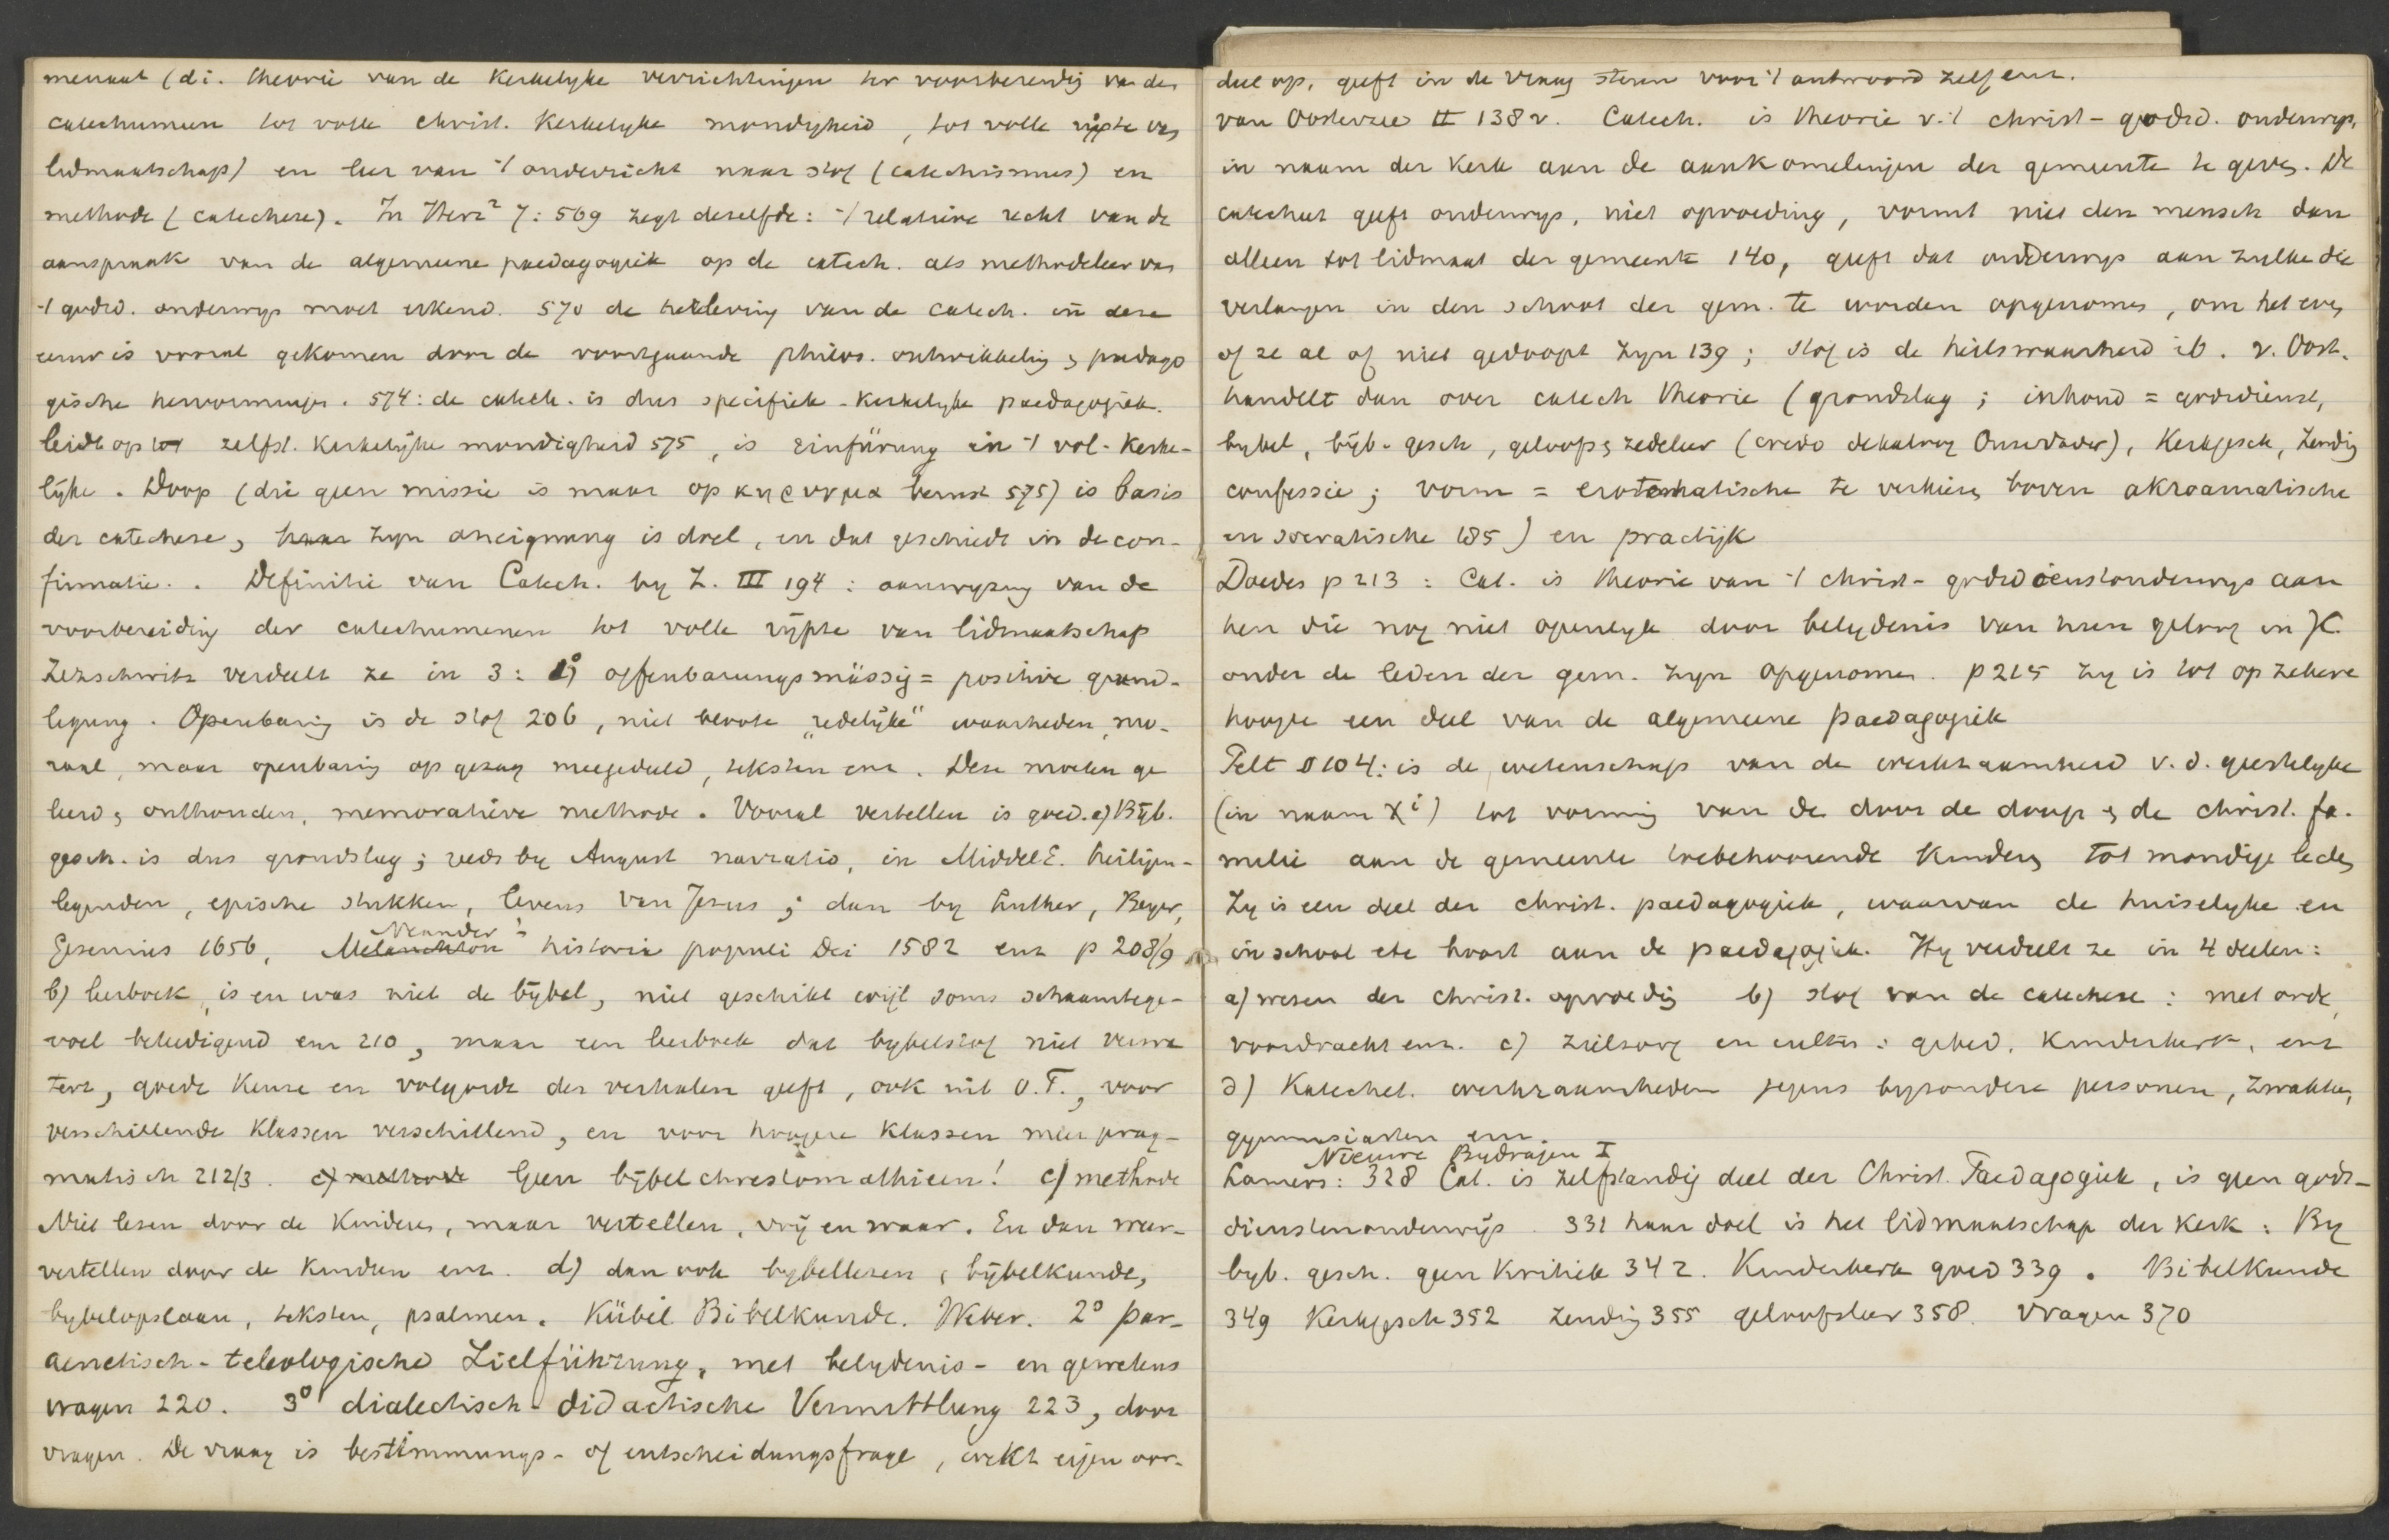 menaat (d.i. theorie van de kerkelyke verrichtingen ter voorbereidig van den
catechumeen tot volle christ. kerkelyke mondigheid, tot volle rijpte van
lidmaatschap) en leer van 't onderricht naar stof (catechismus) en
methode (catechese). In Herz² 7:569 zegt dezelfde: 't relatieve recht van de
aanspraak van de algemeene paedagogiek op de catech. als methodeleer van
't godsd. onderwys moet erkend. 570 de herleving van de catech. in deze
eeuw is vooral gekomen door de voortgaande philos. ontwikkeling & paedago
gische hervormingen. 574: de catech. is dus specifiek-kerkelyke paedagogiek.
leidt op tot zelfst. kerkelijke mondigheid 575, is Einfürung in 't vol-kerke-
lijke. Doop (die geen missie is maar op κηρυγμα berust 575) is basis
der catechese, haar zyn aneignung is doel, en dat geschiedt in de con-
firmatie. Definitie van Catech. by Z. III 194: aanwyzing van de
voorbereiding der catechumenen tot volle rijpte van lidmaatschap
Zezschwitz verdeelt ze in 3: 1°) offenbarungsmässig = positive grund-
legung. Openbaring is de stof 206, niet bloote "redelijke" waarheden, mo-
raal, maar openbaring op gezag meegedeeld, teksten enz. Deze moeten ge
leerd & onthouden, memoratieve methode. Vooral vertellen is goed. a) Bijb.
gesch. is dus grondslag; reeds by August narratio, in MiddelE. heiligen-
legenden, epische stukken, levens van Jesus; dan by Luther, Beyer,
Gesenius 1656, Melanchton Neander: historia populi Dei 1582 enz p 208/9
b) leerboek, is en was niet de bijbel, niet geschikt wijl soms schaamtege-
voel beleedigend enz 210, maar een leerboek dat bybelstof niet verwa
tert, goede keuze en volgorde der verhalen geeft, ook uit O.T., voor
verschillende klassen verschillend, en voor hoogere klassen meer prag-
matisch 212/3. c) methode Geen bijbelchrestomathieen! c) methode
Niet lezen door de kinderen, maar vertellen, vrij en waar. En dan weer-
vertellen door de kinderen enz. d) dan ook bybellezen, bijbelkunde,
bybelopslaan, teksten, psalmen. Kübel Bibelkunde. Weber. 2° par-
aenetisch-teleologische Zielführung, met belydenis- en gewetens
vragen 220. 3° dialectisch-didactische Vermittlung 223, door
vragen. De vraag is bestimmungs- of entscheidungsfrage, wekt eigen oor-
deel op, geeft in de vraag steun voor 't antwoord zelf enz.
van Oosterzee II 138 v. Catech. is theorie v. 't christ-godsd. onderwys,
in naam der kerk aan de aankomelingen der gemeente te geven. De
catecheet geeft onderwys, niet opvoeding, vormt niet den mensch dan
alleen tot lidmaat der gemeente 140, geeft dat onderwys aan zulke die
verlangen in den schoot der gem. te worden opgenomen, om het even
of ze al of niet gedoopt zyn 139; stof is de heilswaarheid ib. v. Oost.
handelt dan over catech theorie (grondslag; inhoud = godsdienst,
bybel, bijb. gesch, geloofs & zedeleer (credo dekaloog Onzevader), kerkgesch, Zending
confessie; vorm = erotematische te verkiezen boven akroamatische
en socratische 185) en practijk
Doedes p 213: Cat. is theorie van 't christ-godsdienstonderwys aan
hen die nog niet openlyk door belydenis van hun geloof in JC.
onder de leden der gem. zyn opgenomen. p 215 zy is tot op zekere
hoogte een deel van de algemeene paedagogiek
Pelt 604: is de wetenschap van de werkzaamheid v.d. geestelyke
(in naam Xi) tot vorming van de door de doop & de christ. fa-
milie aan de gemeente toebehoorende kinderen tot mondige leden
Zy is een deel der christ. paedagogiek, waarvan de huiselyke en
in school etc hoort aan de paedagogiek. Hy verdeelt ze in 4 deelen:
a) wezen der christ. opvoeding b) stof van de catechese: met orde,
voordracht enz. c) zielzorg en cultus: gebed, kinderkerk, enz
d) Katechet. werkzaamheden jegens byzondere personen, zwakken,
gymnasiasten enz.
Lamers: Nieuwe Bydragen I 328 Cat. is zelfstandig deel der Christ. Paedagogiek, is geen gods-
dienstenonderwijs. 331 haar doel is het lidmaatschap der kerk: By
byb. gesch. geen kritiek 342. Kinderkerk goed 339. Bibelkunde
349 Kerkgesch 352 Zending 355 geloofsleer 358. Vragen 370